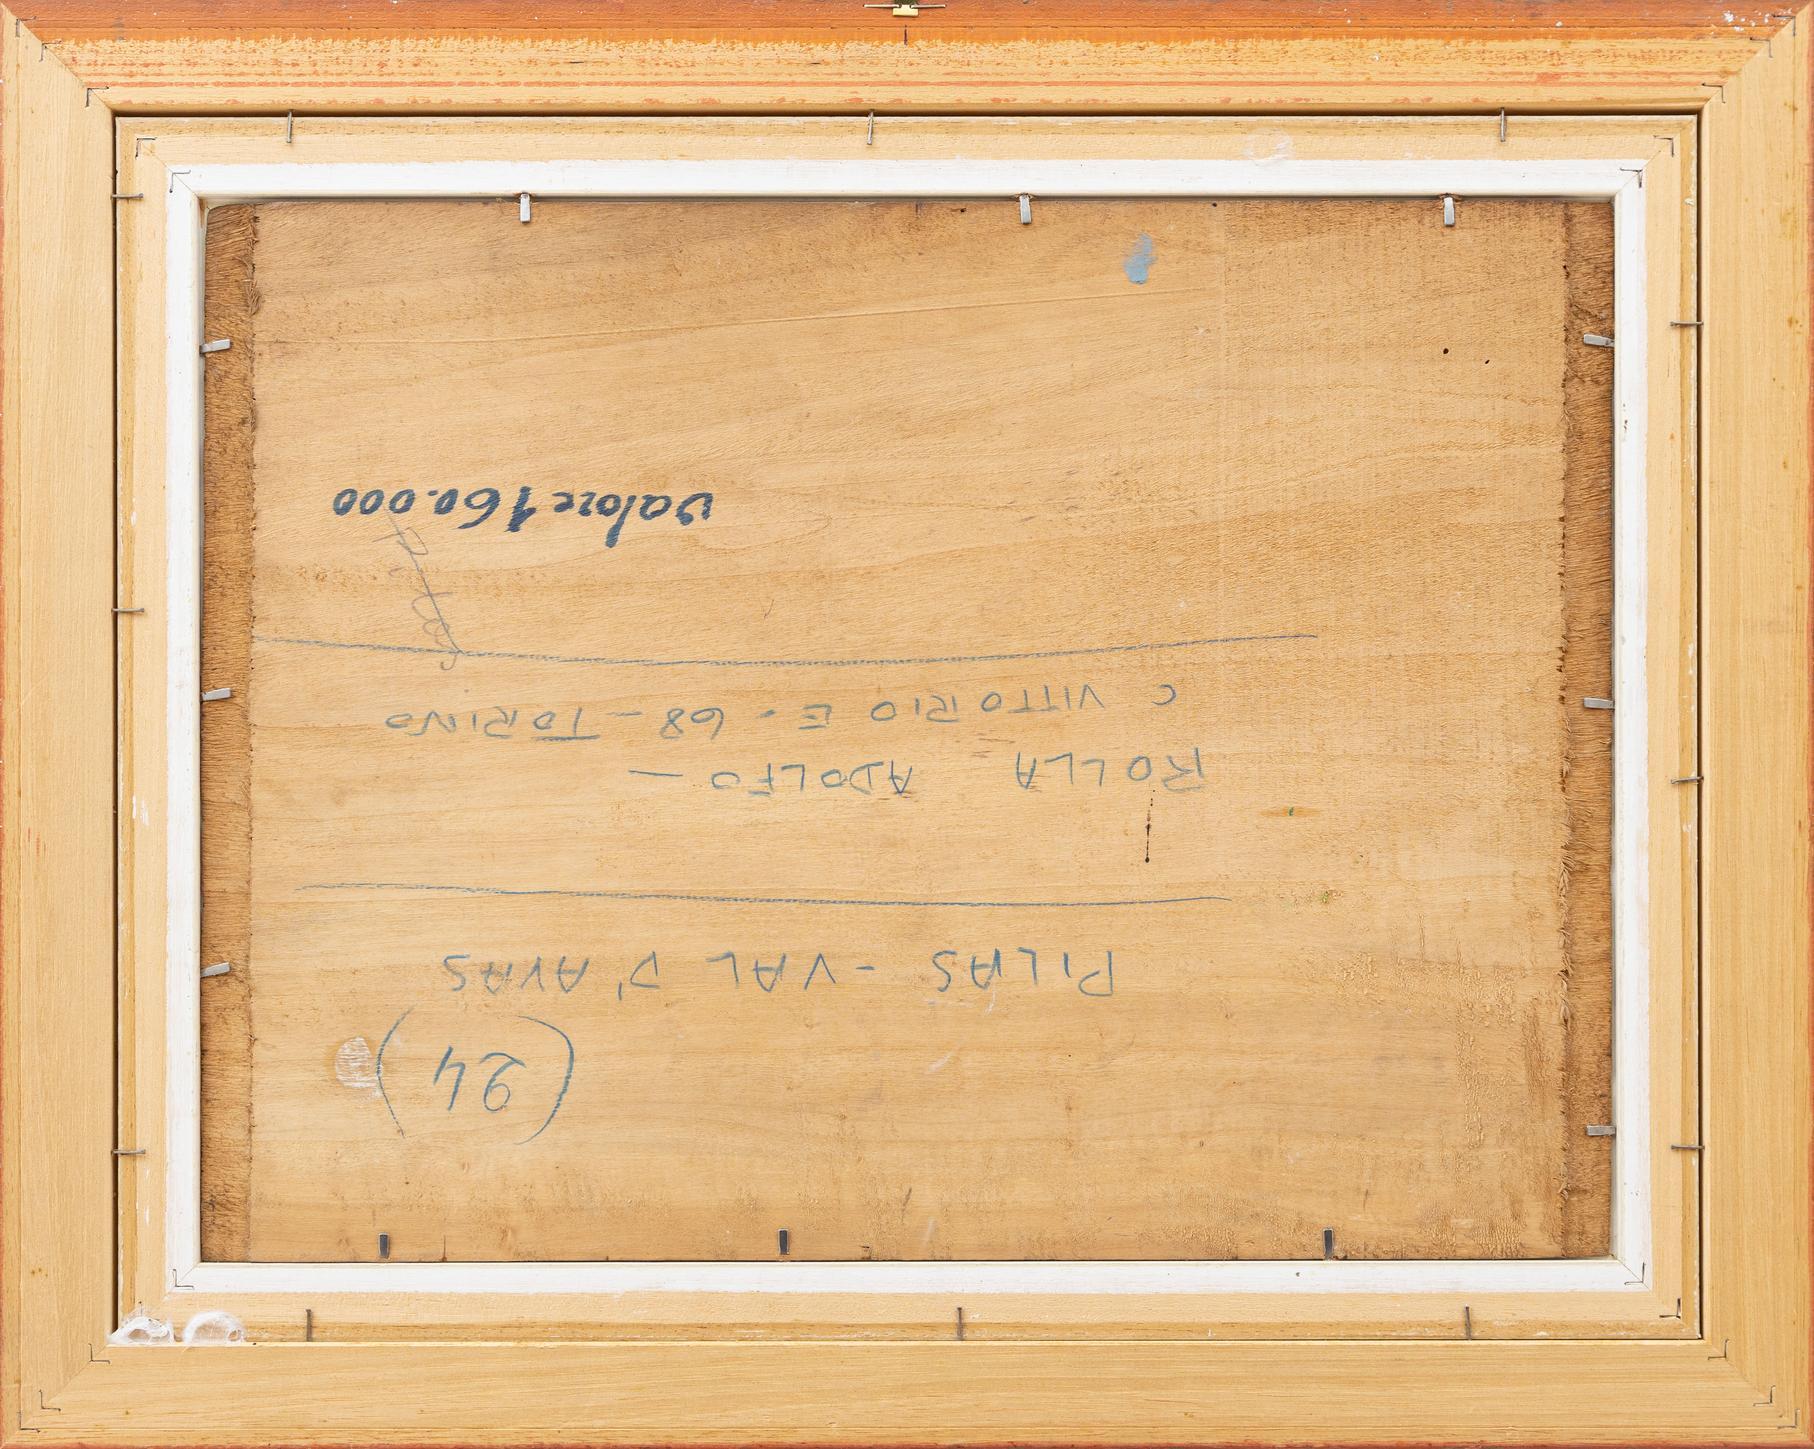 (24)
PILAS - VAL D'AYAS
ROLLA ADOLFO -
C VITTORIO E. 68 - TORINO
valore 160.000